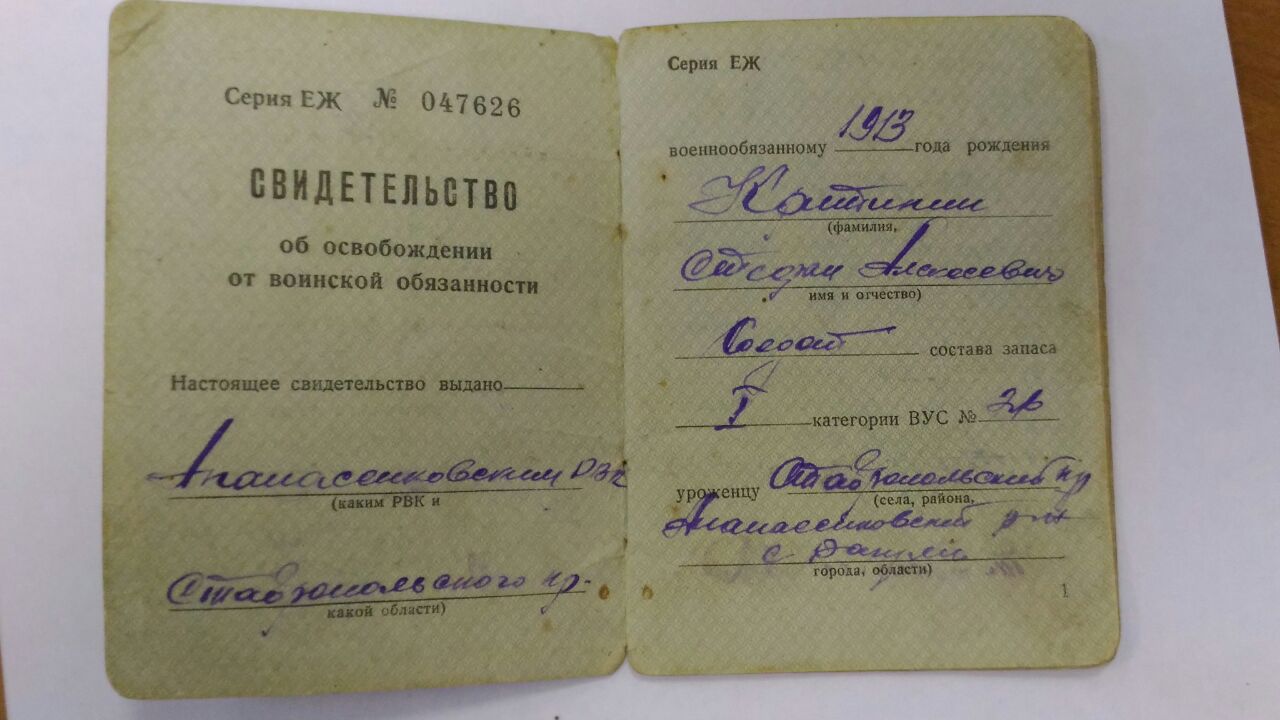 Серия ЕЖ № 047626
СВИДЕТЕЛЬСТВО
об освобождении
от воинской обязанности
Настоящее свидетельство выдано
Апанасенковским РВК
(каким РВК и
Ставропольского кр.
какой области)
Серия ЕЖ
военнообязанному 1913 года рождения
(фамилия,
Алексеевич
имя и отчество)
Солдат состава запаса
I категории ВУС №
уроженцу Ставропольский кр
(села, района,
Апанасенковский р-н
с
города, области)
1